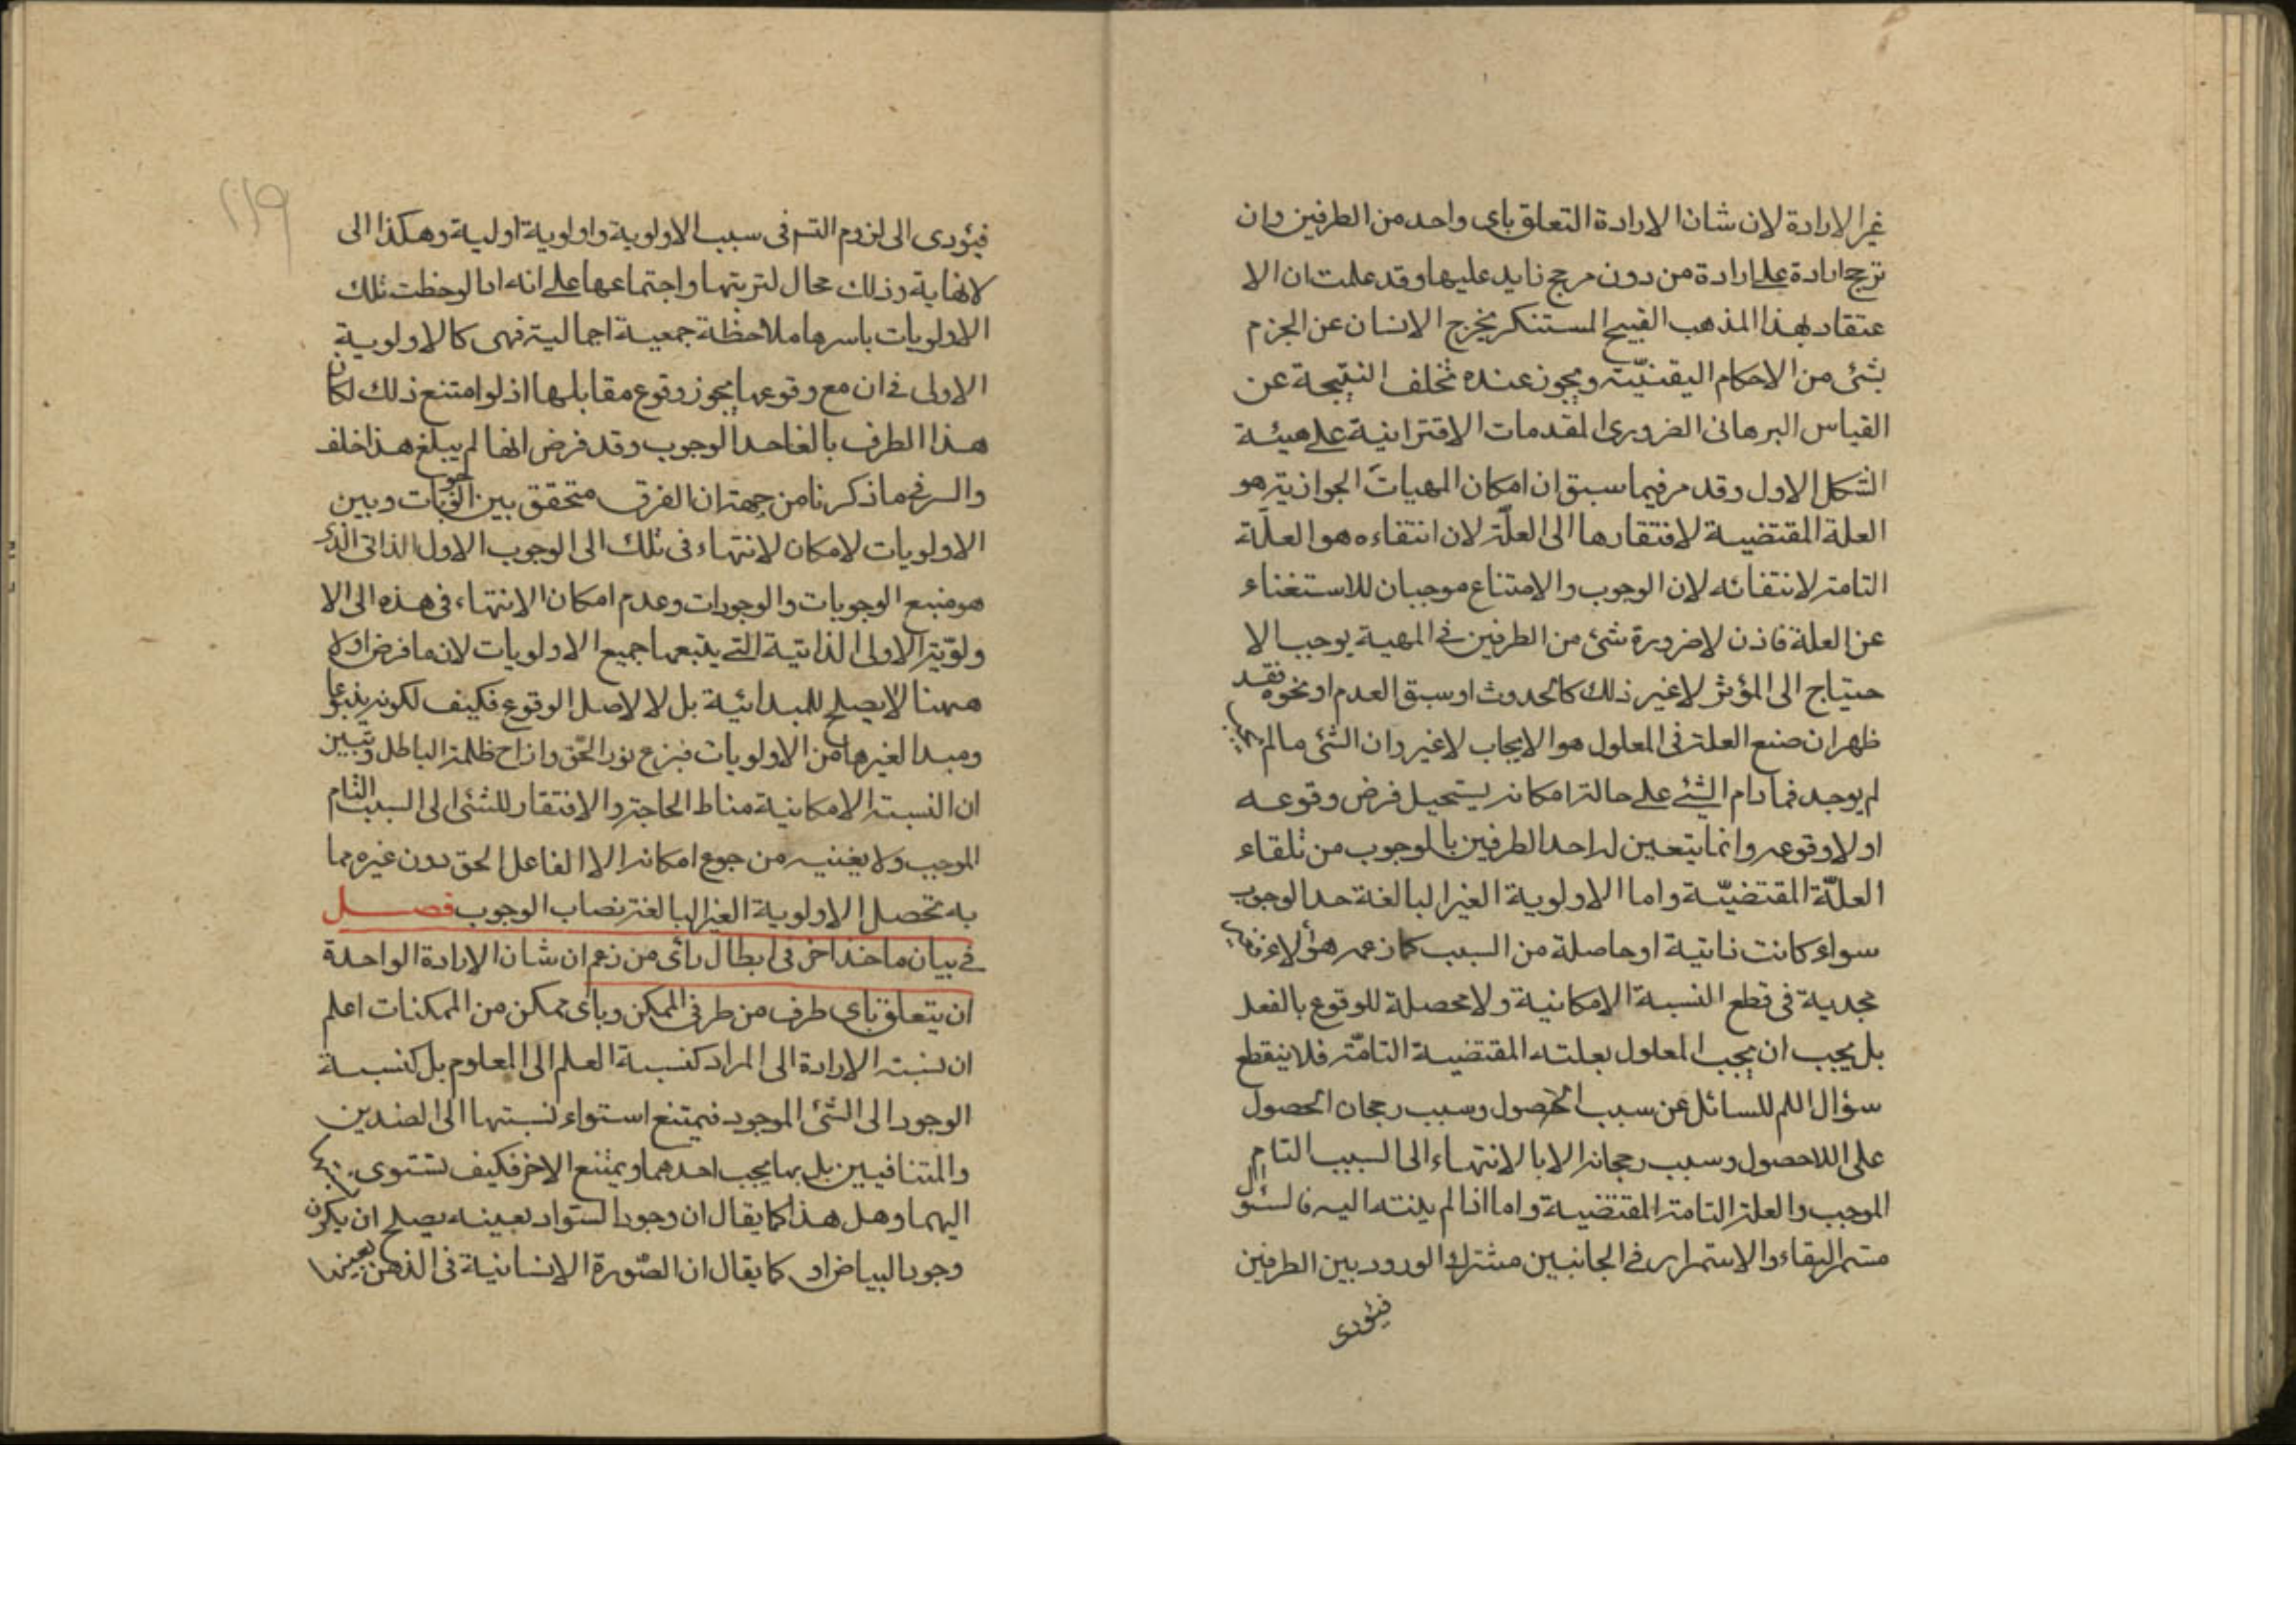 غير الارادة لان شان الارادة التعلق باى واحد من الطرفين وان
ترجح ارادة على ارادة من دون مرجح زايد عليها وقد علمت ان الا
عتقاد بهذا المذهب القبيح المستنكر يخرج الانسان عن الجزم
بشئ من الاحكام اليقنيّة ويجوز عنده تخلف النتيجة عن
القياس البرهانى الضرورى المقدمات الاقترانية على هيئة
الشكل الاول وقد مر فيما سبق ان امكان المهيات الجوازية هو
العلة المقتضية لافتقارها الى العلّة لان انتفاءه هو العلّة
التامة لانتفائه لان الوجوب والامتناع موجبان للاستغناء
عن العلة فاذن لا ضرورة شئ من الطرفين فى المهية يوجب الا
حتياج الى المؤثر لا غير ذلك كالحدوث او سبق العدم او نحوه فقد
ظهر ان صنع العلة فى المعلول هو الايجاب لا غير وان الشئ ما لم يجب
لم يوجد فما دام الشئ على حالة امكانه يستحيل فرض وقوعه
او لا وقوعه وانما يتعين له احد الطرفين بالوجوب من تلقاء
العلّة المقتضيّة واما الاولوية الغير البالغة حد الوجوب
سواء كانت ذاتية او حاصلة من السبب كما زعمه هؤلاء فغير
مجدية فى قطع النسبة الامكانية ولا محصلة للوقوع بالفعل
بل يجب ان يجب المعلول بعلته المقتضية التامّة فلا ينقطع
سؤال اللم للسائل عن سبب الحصول وسبب رجحان الحصول
على اللاحصول وسبب رجحانه الا بالانتهاء الى السبب التام
الموجب والعلة التامة المقتضية واما اذا لم ينته اليه فالسئوال
مستمر البقاء والاستمرار فى الجانبين مشترك الورود بين الطرفين
فيئودى
فيئودى الى لزوم التسم فى سبب الاولوية واولوية اولية وهكذا الى
لا نهاية وذلك محال لتربتها واجتماعها على انه اذا لوحظت تلك
الاولويات باسرها ملاحظة جمعية اجمالية فهى كالاولوية
الاولى فى ان مع وقوعها يجوز وقوع مقابلها اذ لو امتنع ذلك لكان
هذا الطرف بالغا حد الوجوب وقد فرض انها لم يبلغ هذا خلف
والسر فى ما ذكرنا من جهة ان الفرق متحقق بين الوجوبات وبين
الاولويات لامكان لانتهاء فى تلك الى الوجوب الاول الذاتى الذى
هو منبع الوجوبات والوجودات وعدم امكان الانتهاء فى هذه الى الا
ولوّية الاولى الذاتية التى يتبعها جميع الاولويات لان ما فرض اولا
ههنا لا يصلح للمبدائية بل لا لاصل الوقوع فكيف لكونه ينبوعا
ومبدا لغيرها من الاولويات فبزغ نور الحّق وازاح ظلمة الباطل وتبين
ان النسبة الامكانية مناط الحاجة والافتقار للشئ الى السبب التام
الموجب ولا يغنيه من جوع امكانه الا الفاعل الحق دون غيره مما
به تحصل الاولوية الغير البالغة نصاب الوجوب فصل
فى بيان ماخذ اخر فى ابطال رأى من زعم ان شان الارادة الواحدة
ان يتعلق باى طرف من طرفى الممكن وباى ممكن من الممكنات اعلم
ان نسبة الارادة الى المراد كنسبة العلم الى المعلوم بل كنسبة
الوجود الى الشئ الموجود فيمتنع استواء نسبتها الى الضدين
والمتنافيين بل بها يجب احدهما ويمتنع الاخر فكيف تستوى
اليهما وهل هذا كما يقال ان وجود السّواد بعينه يصلح ان يكون
وجود البياض او كما يقال ان الصّورة الانسانية فى الذهن بعينها